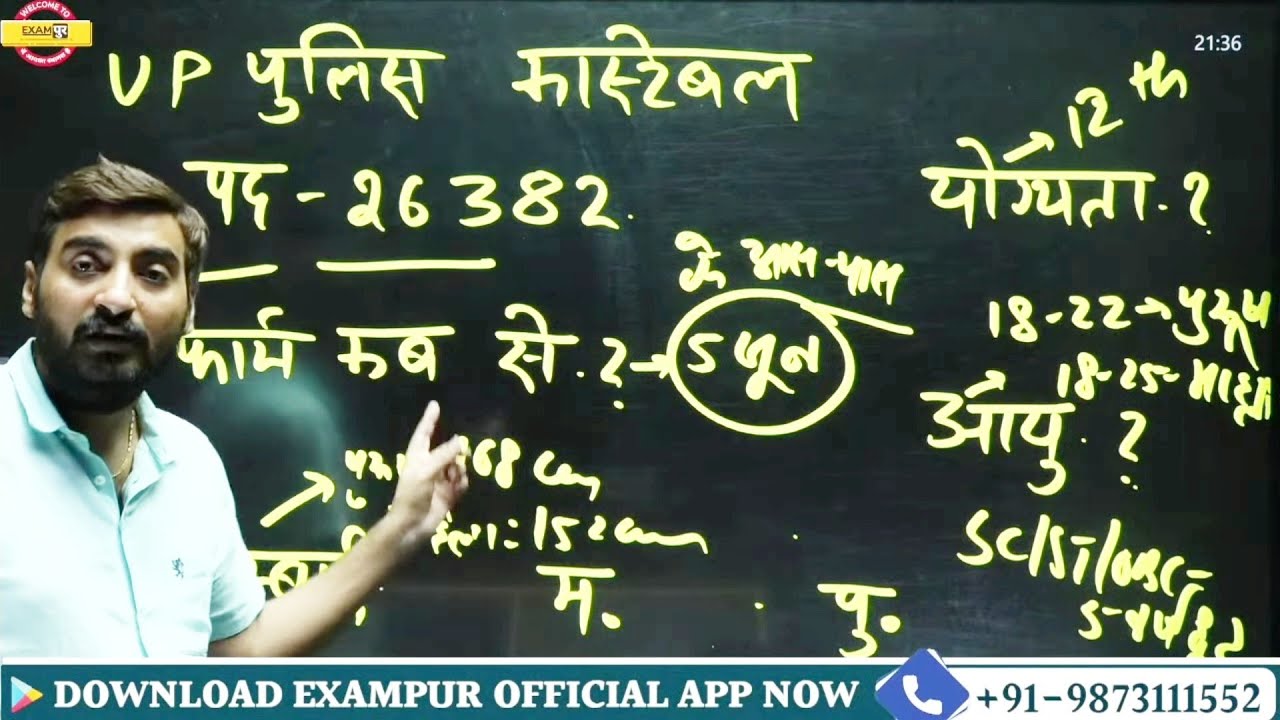 WELCOME TO
EXAMपुर
21:36
UP पुलिस कास्टेबल
12th
पद - 26382.
योग्यता . ?
के आस-पास
18-22→ पुरुष
फार्म कब से . ? → 5 जून
18-25-
आयु . ?
168 cm
: 152 cm
SC/ST/OBC-
5-वर्ष छूट
म. . पु.
DOWNLOAD EXAMPUR OFFICIAL APP NOW
+91-9873111552